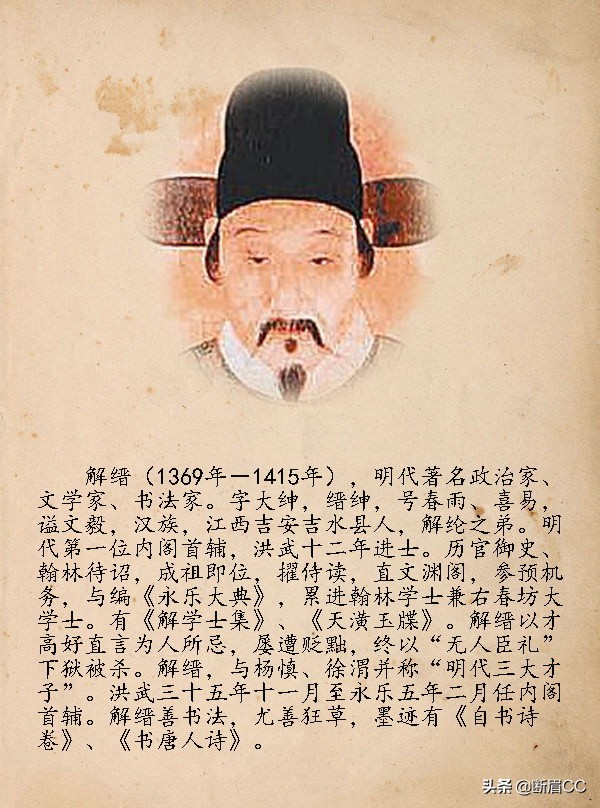 解缙（1369年—1415年），明代著名政治家、
文学家、书法家。字大绅，缙绅，号春雨、喜易，
谥文毅，汉族，江西吉安吉水县人，解纶之弟。明
代第一位内阁首辅，洪武十二年进士。历官御史、
翰林待诏，成祖即位，擢侍读，直文渊阁，参预机
务，与编《永乐大典》，累进翰林学士兼右春坊大
学士。有《解学士集》、《天潢玉牒》。解缙以才
高好直言为人所忌，屡遭贬黜，终以“无人臣礼”
下狱被杀。解缙，与杨慎、徐渭并称“明代三大才
子”。洪武三十五年十一月至永乐五年二月任内阁
首辅。解缙善书法，尤善狂草，墨迹有《自书诗
卷》、《书唐人诗》。
头条 @断眉CC